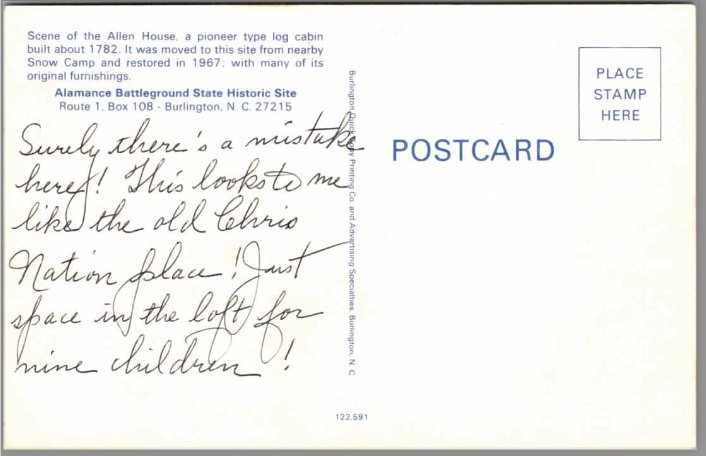 Scene of the Allen House, a pioneer type log cabin
built about 1782. It was moved to this site from nearby
Snow Camp and restored in 1967; with many of its
original furnishings.
Alamance Battleground State Historic Site
Route 1, Box 108 - Burlington, N. C. 27215
Surely there's a mistake
here! This looks to me
like the old Chris
Nation place! Just
space in the loft for
nine children!
Burlington Quick Copy Printing Co. and Advertising Specialties, Burlington, N. C.
122,591
POSTCARD
PLACE
STAMP
HERE